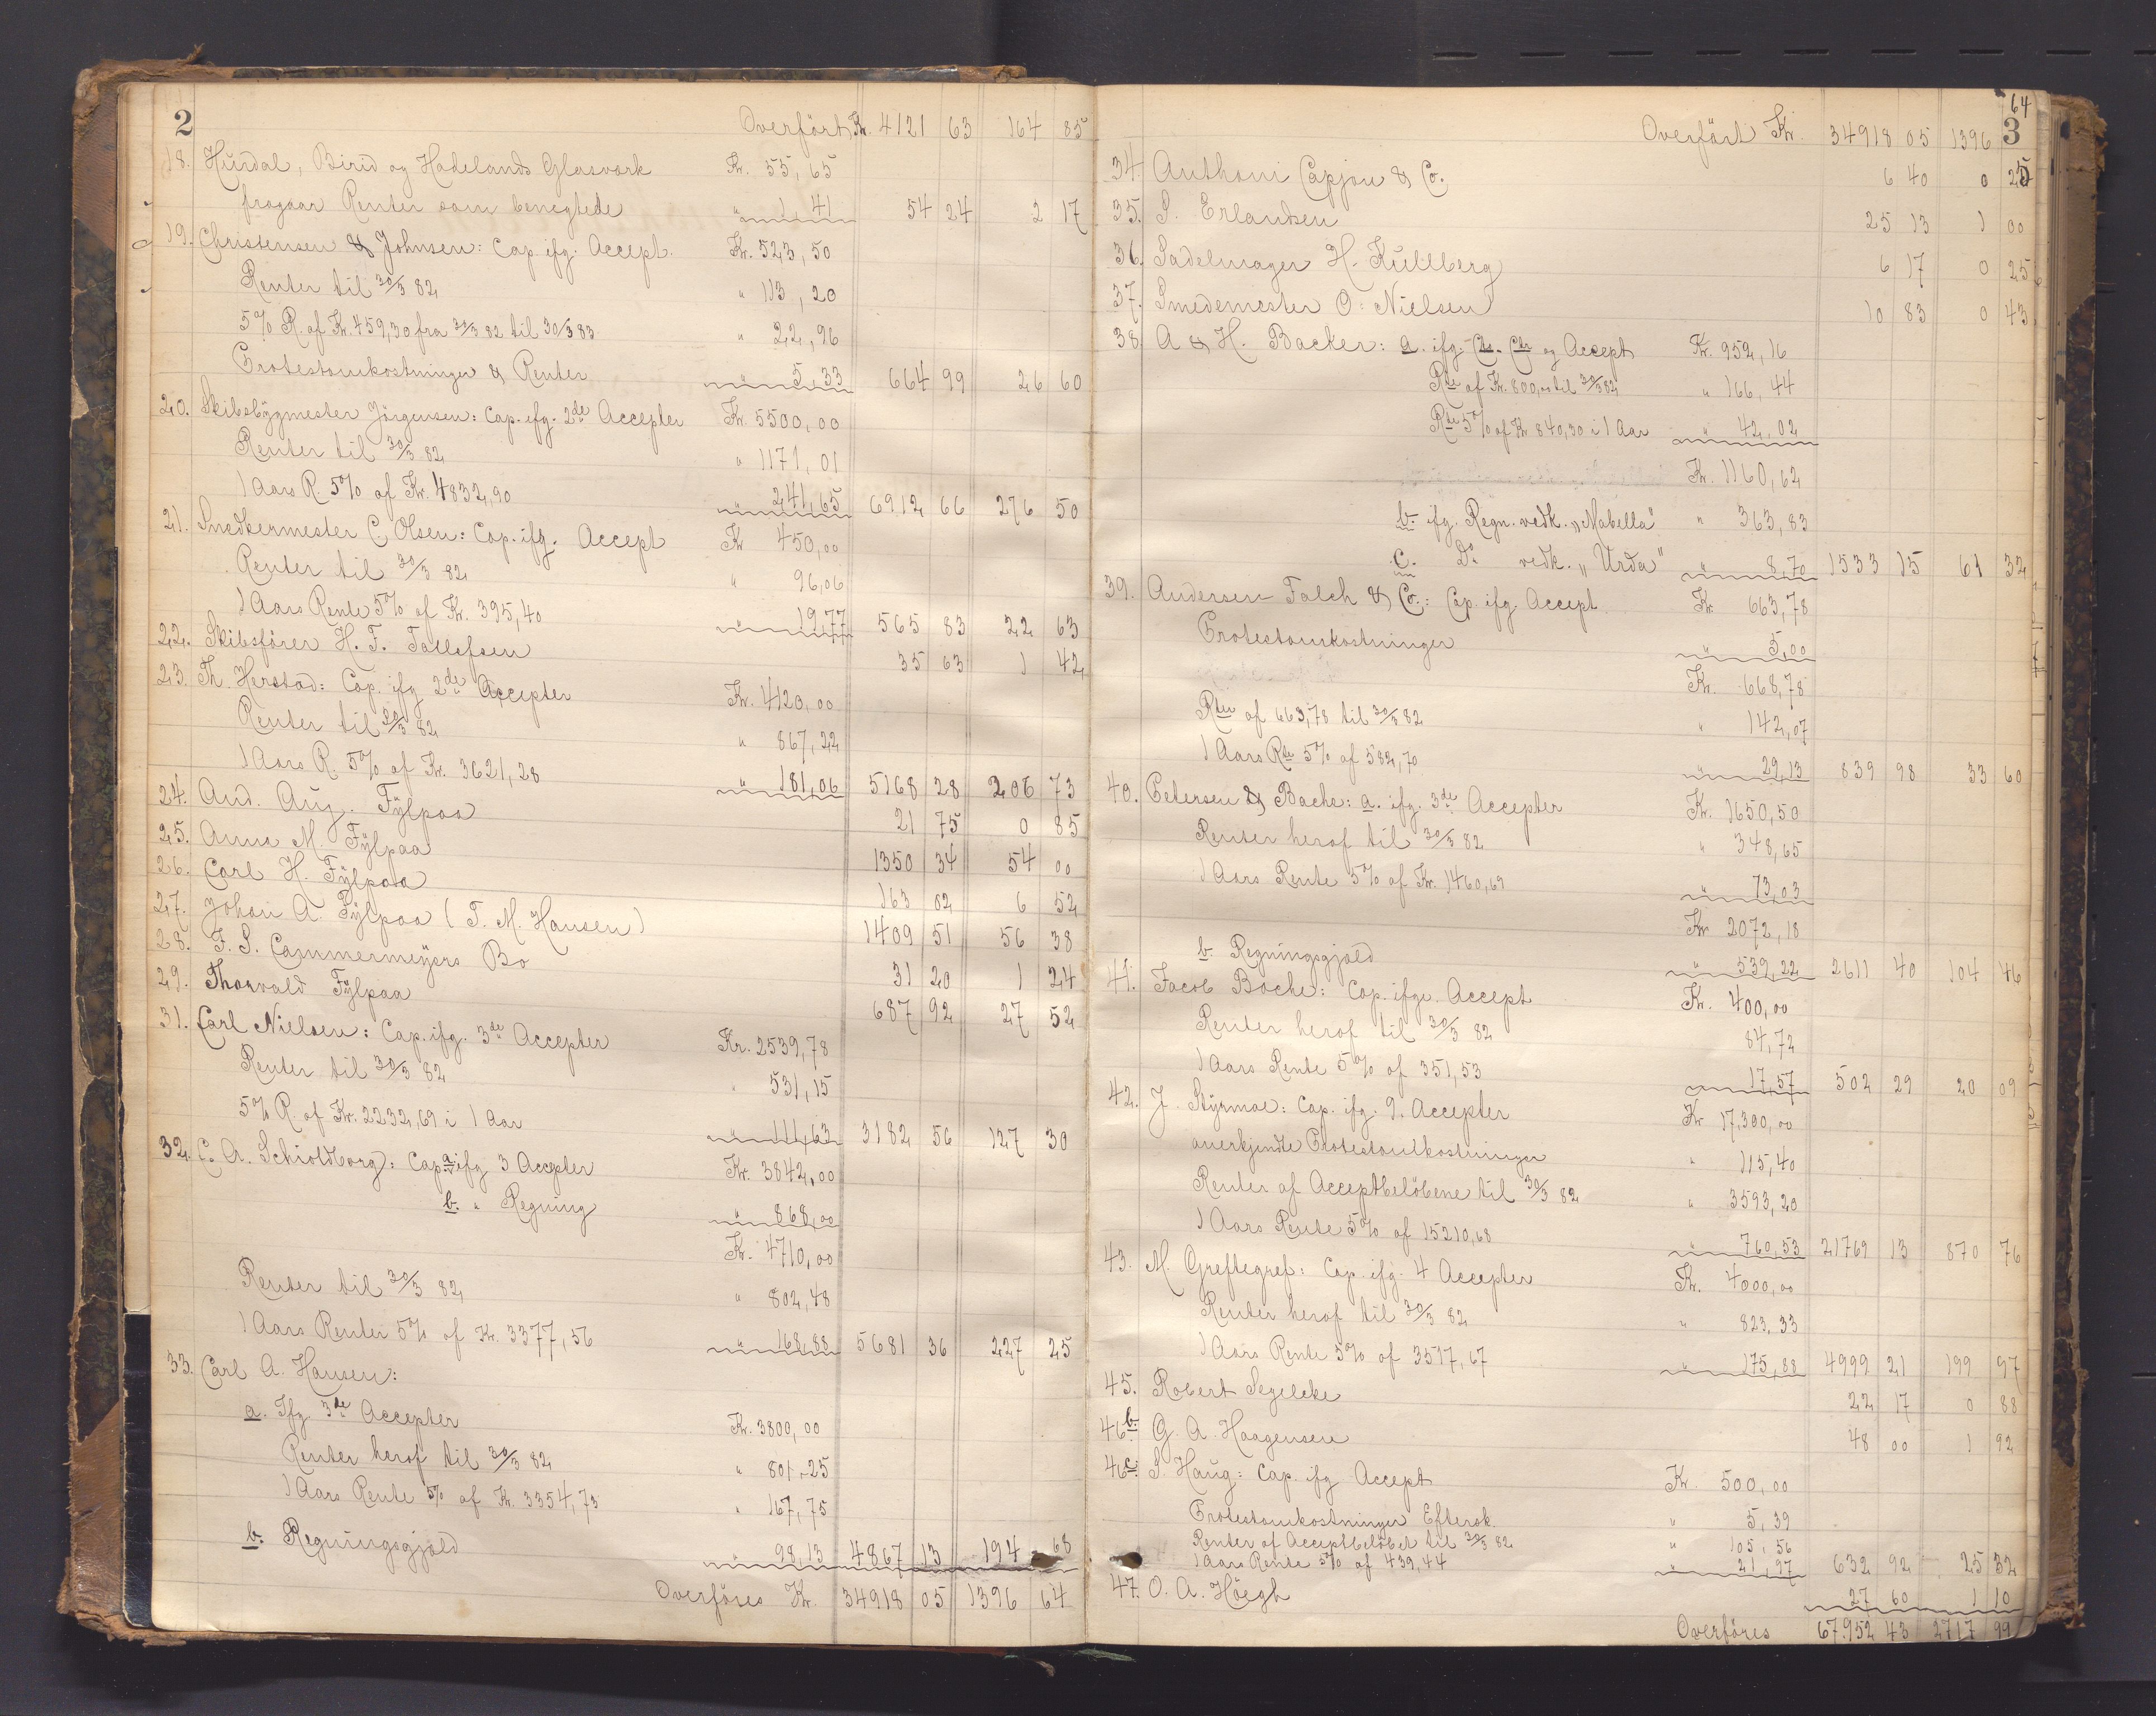 2
Overført Kr. 4121 63 164 85
18. Hurdal, Birid og Hadelands Glasværk Kr. 55,65
fragaar Renter som benegtede " 1,41 54 24 2 17
19. Christensen & Johnsen: Cap. ifg. Accept. Kr. 523,50
Renter til 30/3 82 " 113,20
5% R. af Kr. 459,30 fra 30/3 82 til 30/3 83 " 22,96
Protestomkostninger & Renter " 5,33 664 99 26 60
20. Skibsbygmester Jörgensen: Cap. ifg. 2de Accepter Kr. 5500,00
Renter til 30/3 82 " 1171,01
1 Aars R. 5% af Kr. 4832,90 " 241,65 6912 66 276 50
21. Snedkermester C. Olsen: Cap. ifg. Accept Kr 450,00
Renter til 30/3 82 " 96,06
1 Aars Rente 5% af Kr. 395,40 " 19,77 565 83 22 63
22. Skibsförer H. T. Tallefsen 35 63 1 42
23. Th. Herstad: Cap. ifg 2de Accepter Kr. 4120,00
Renter til 30/3 82 " 867,22
1 Aars R. 5% af Kr. 3621,28 " 181,06 5168 28 206 73
24. And. Aug. Fÿlpaa 21 75 0 85
25. Anna M. Fÿlpaa 1350 34 54 00
26. Carl H. Fÿlpaa 163 02 6 52
27. Johan A. Fÿlpaa (T. M. Hansen) 1409 51 56 38
28. F. S. Cammermeyers Bo 31 20 1 24
29. Thorvald Fÿlpaa 687 92 27 52
31. Carl Nielsen: Cap. ifg. 3de Accepter Kr. 2539,78
Renter til 30/3 82 " 531,15
5% R. af Kr. 2232,69 i 1 Aar " 111,63 3182 56 127 30
32. C. A. Schioldborg: Cap. a ifg 3 Accepter Kr. 3842,00
b. " Regning " 868,00
Kr. 4710,00
Renter til 30/3 82 " 802,48
1 Aars Renter 5% af Kr. 3377,56 " 168,88 5681 36 227 25
33. Carl A. Hansen:
a. Ifg. 3de Accepter Kr. 3800,00
Renter heraf til 30/3 82 " 801,25
1 Aars Rente 5% af Kr. 3354,73 " 167,75
b. Regningsgjæld " 98,13 4867 13 194 68
Overføres Kr. 34918 05 1396 64
3
Overført Kr. 34918 05 1396 64
34. Anthoni Capjon & Co. 6 40 0 25
35. S. Erlandsen 25 13 1 00
36. Sadelmager H. Kullberg 6 17 0 25
37. Smedemester O. Nielsen 10 83 0 43
38. A & H. Backer: a. ifg. og Accept Kr. 952,16
Rte af Kr. 800,00 til 30/3 82 " 166,44
Rte 5% af Kr 840,30 i 1 Aar " 42,02
Kr. 1160,62
b. ifg. Regn. vedk. "Mabella" " 363,83
c. Do vedk. "Urda" " 8,70 1533 15 61 32
39. Andersen Falch & Co.: Cap. ifg. Accept. Kr. 663,78
Protestomkostninger " 5,00
Kr. 668,78
Rter af 663,78 til 30/3 82 " 142,07
1 Aars Rte 5% af 582,70 " 29,13 839 98 33 60
40. Petersen & Bache: a. ifg. 3de Accepter Kr. 1650,50
Renter heraf til 30/3 82 " 348,65
1 Aars Rente 5% af Kr. 1460,69 " 73,03
Kr 2072,18
b. Regningsgjæld " 539,22 2611 40 104 46
41. Jacob Bache: Cap. ifge. Accept Kr. 400,00
Renter heraf til 30/3 82 84,72
1 Aars Rente 5% af 351,53 17,57 502 29 20 09
42. J. Styrmoe: Cap. ifg. 9. Accepter Kr 17,300,00
anerkjendte Protestomkostninger " 115,40
Renter af Acceptbelöbene til 30/3 82 " 3593,20
1 Aars Rente 5% af 15210,68 " 760,53 21769 13 870 76
43. M. Greftegref: Cap. ifg. 4 Accepter Kr. 4000,00
Renter heraf til 30/3 82 " 823,33
1 Aars Rente 5% af 3517,67 " 175,88 4999 21 199 97
45. Robert Segelcke 22 17 0 88
46b. G. A. Haagensen 48 00 1 92
46c. S. Haug: Cap. ifg Accept Kr. 500,00
Protestomkostninger Eftersk. " 5,39
Renter af Acceptbelöbet til 30/3 82 " 105,56
1 Aars Rente 5% af 439,44 " 21,97 632 92 25 32
47. O. A. Höegh 27 60 1 10
Overføres 67.952 43 2717 99